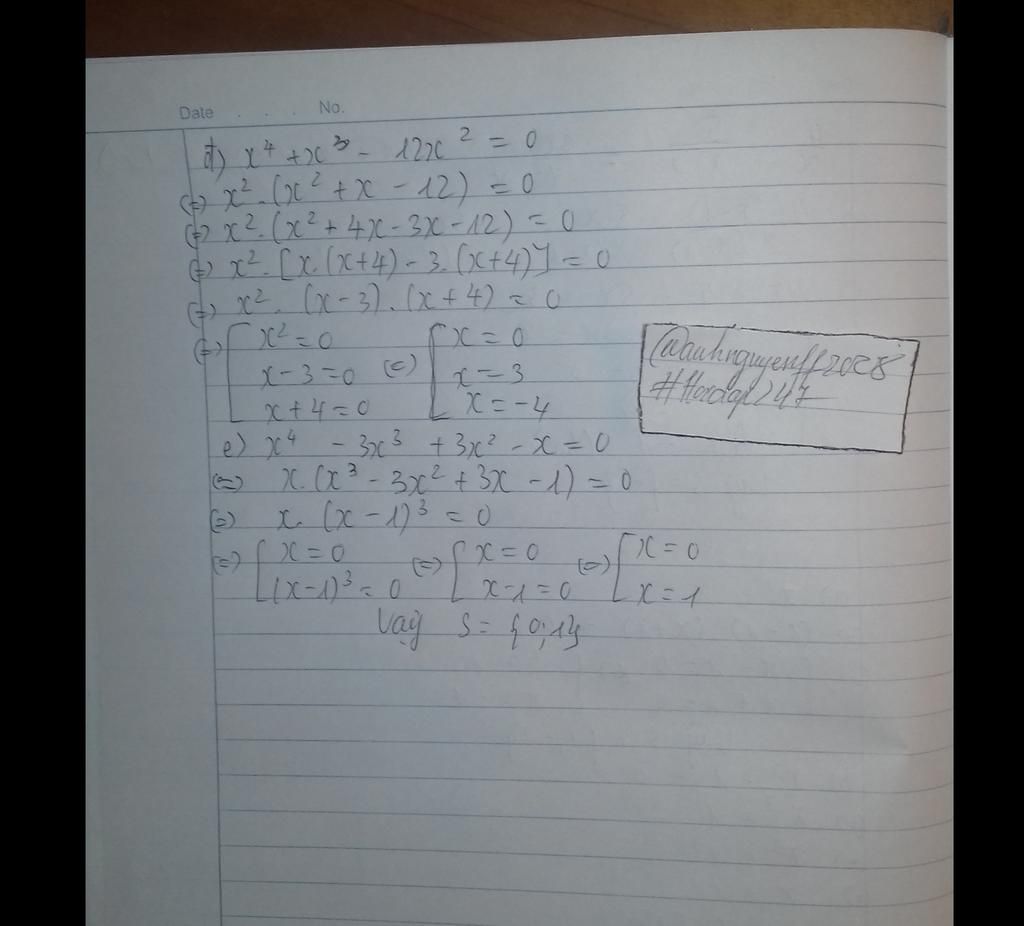 Date . . . No.
d) x⁴ + x³ - 12x² = 0
(=) x². (x² + x - 12) = 0
(=) x². (x² + 4x - 3x - 12) = 0
(=) x². [x. (x+4) - 3. (x+4)] = 0
(=) x². (x-3). (x+4) = 0
(=) [ x² = 0 (=) [ x = 0
x - 3 = 0 x = 3
x + 4 = 0 x = -4
@auhnguyenff2028
#Hoidap247
e) x⁴ - 3x³ + 3x² - x = 0
(=) x. (x³ - 3x² + 3x - 1) = 0
(=) x. (x - 1)³ = 0
(=) [ x = 0 (=) [ x = 0 (=) [ x = 0
(x-1)³ = 0 x-1 = 0 x = 1
Vậy S = {0; 1}